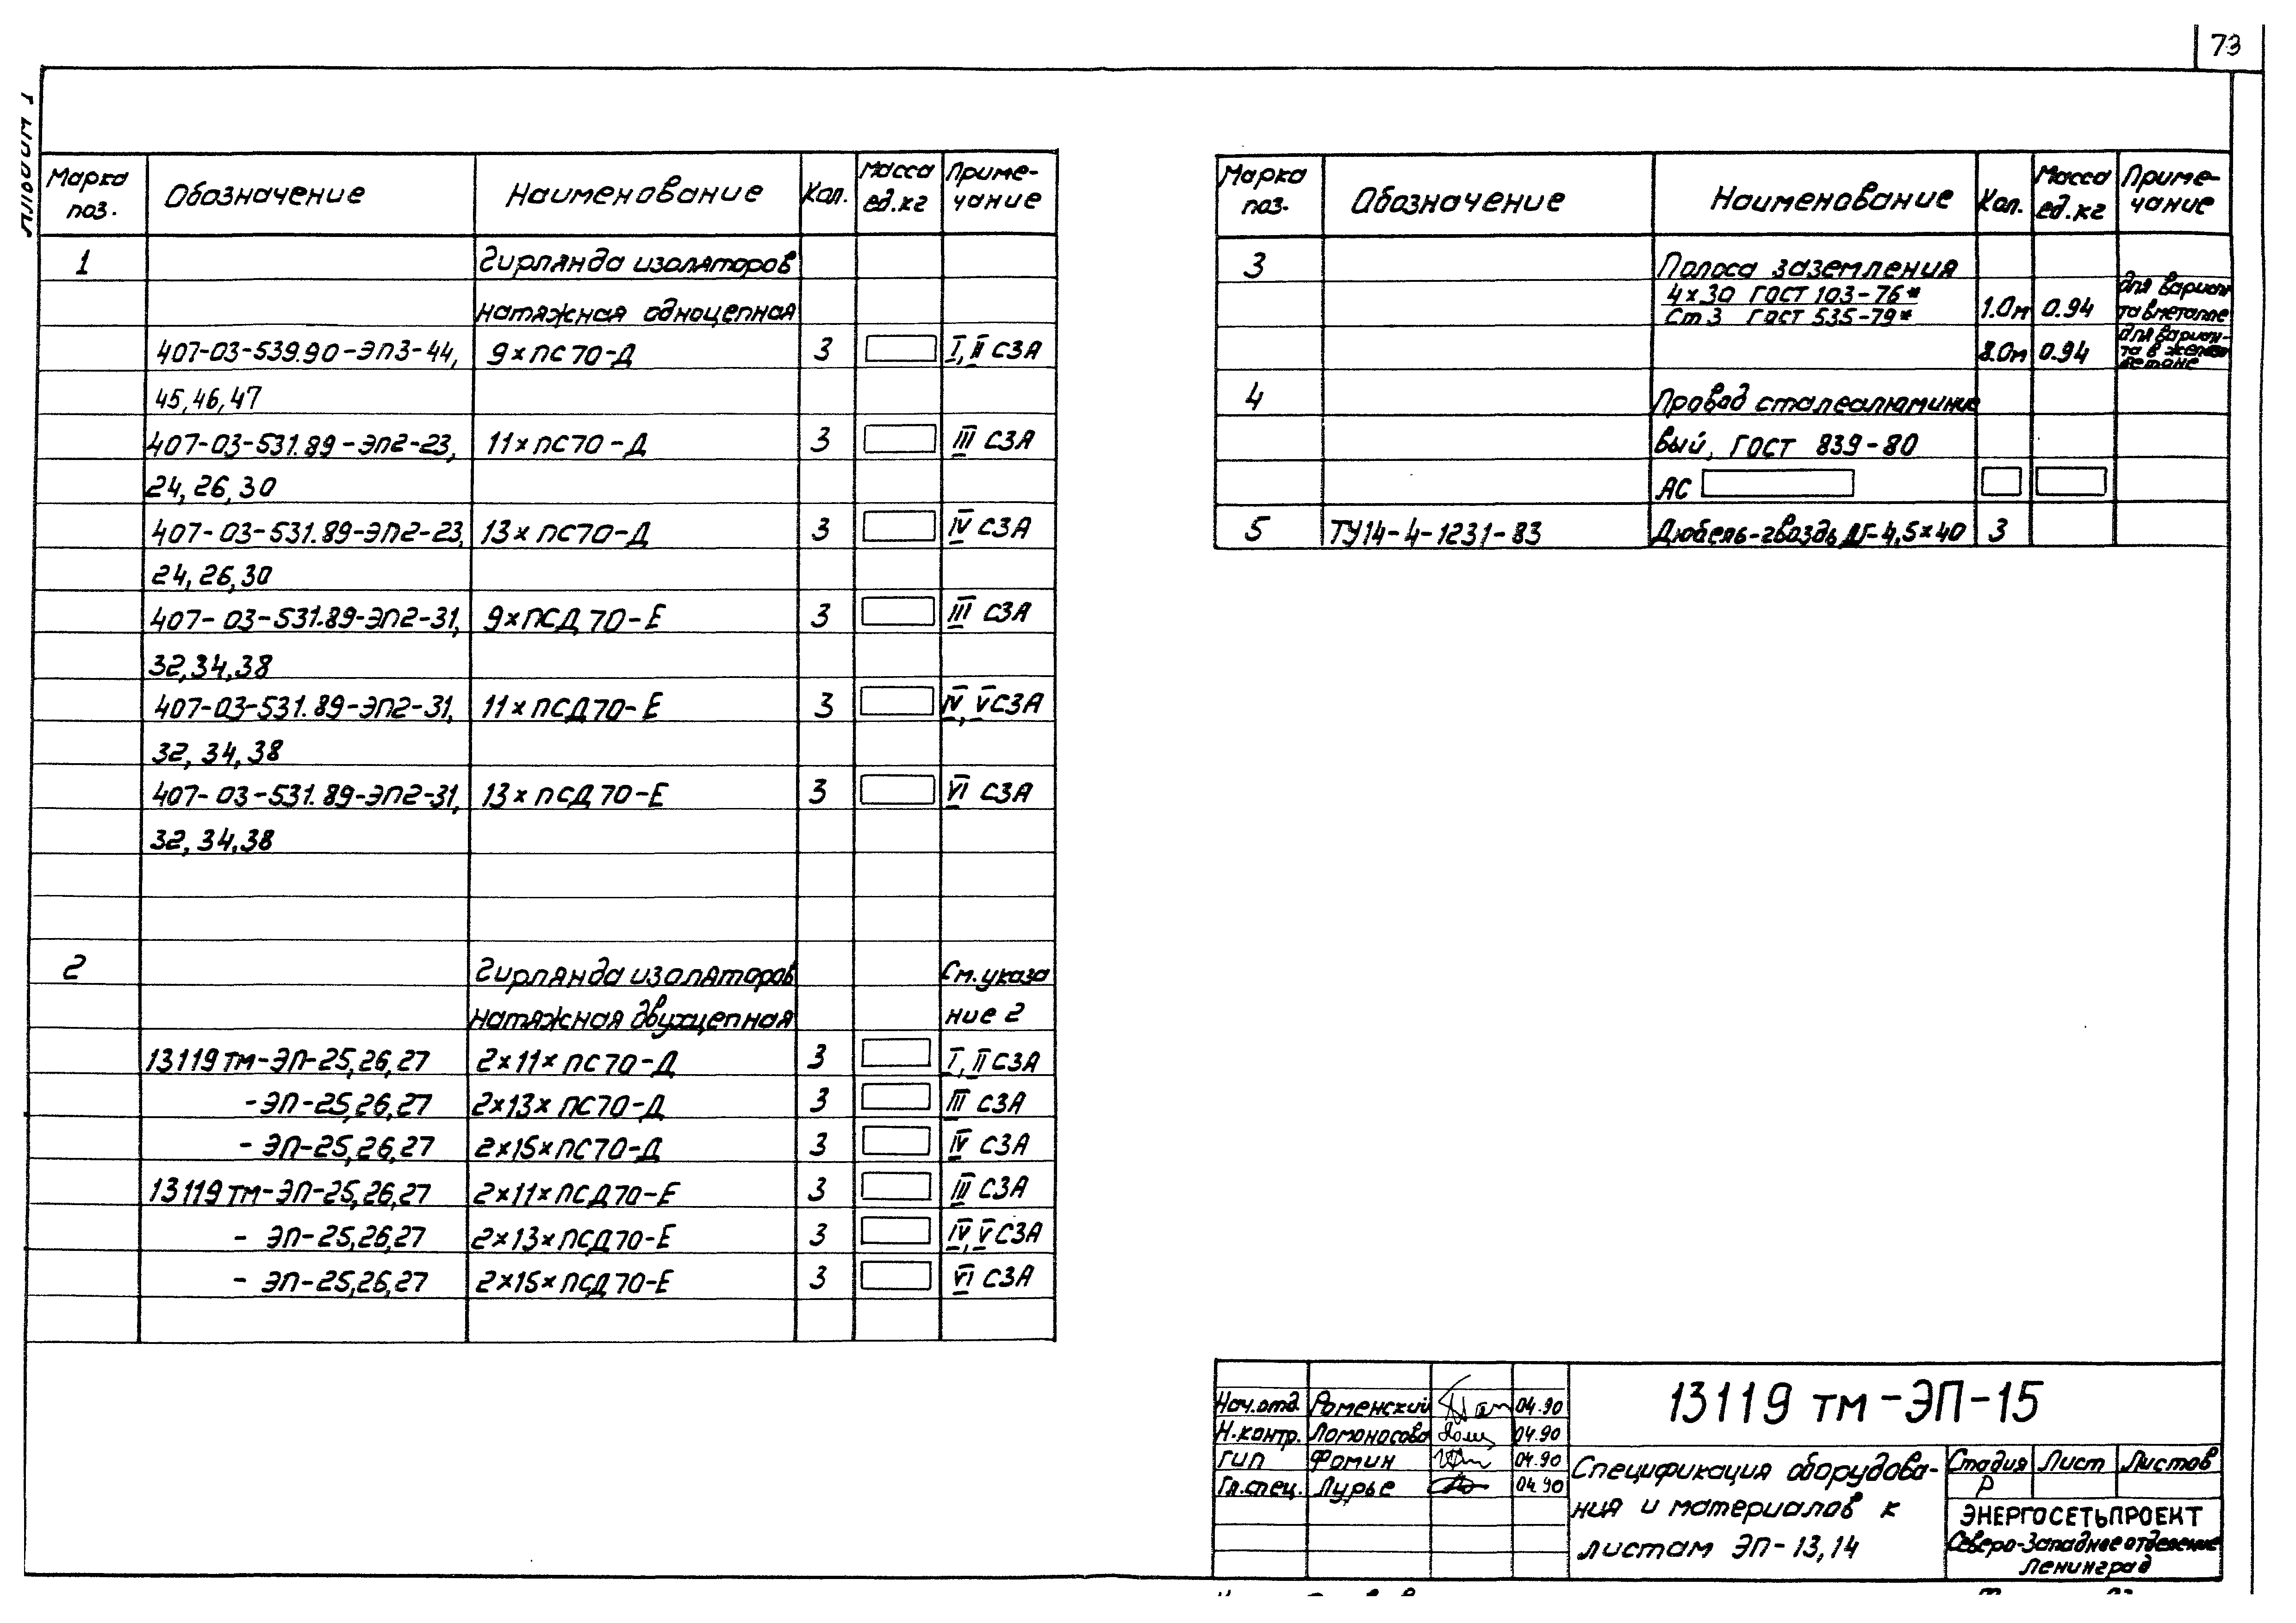 73
Альбом I
Марка поз. Обозначение Наименование Кол. Масса ед.кг Приме-чание
1 Гирлянда изоляторов
натяжная одноцепная
407-03-539.90-ЭП3-44, 9×ПС70-Д 3 I, II СЗА
45,46,47
407-03-531.89-ЭП2-23, 11×ПС70-Д 3 III СЗА
24,26,30
407-03-531.89-ЭП2-23, 13×ПС70-Д 3 IV СЗА
24,26,30
407-03-531.89-ЭП2-31, 9×ПСД70-Е 3 III СЗА
32,34,38
407-03-531.89-ЭП2-31, 11×ПСД70-Е 3 IV, V СЗА
32,34,38
407-03-531.89-ЭП2-31, 13×ПСД70-Е 3 VI СЗА
32,34,38
2 Гирлянда изоляторов См.указа
натяжная двухцепная ние 2
13119тм-ЭП-25,26,27 2×11×ПС70-Д 3 I, II СЗА
-ЭП-25,26,27 2×13×ПС70-Д 3 III СЗА
-ЭП-25,26,27 2×15×ПС70-Д 3 IV СЗА
13119тм-ЭП-25,26,27 2×11×ПСД70-Е 3 III СЗА
- ЭП-25,26,27 2×13×ПСД70-Е 3 IV, V СЗА
- ЭП-25,26,27 2×15×ПСД70-Е 3 VI СЗА
Марка поз. Обозначение Наименование Кол. Масса ед.кг Приме-чание
3 Полоса заземления
4×30 ГОСТ 103-76* для вариан
Ст3 ГОСТ 535-79* 1.0м 0.94 та в металле
для вариан-
8.0м 0.94 та в железо
бетоне
4 Провод сталеалюмине
вый, ГОСТ 839-80
АС
5 ТУ14-4-1231-83 Дюбель-гвоздь ДГ-4,5×40 3
Нач.отд. Роменский 04.90
Н.контр. Ломоносова 04.90
ГИП Фомин 04.90
Гл.спец. Лурье 04.90
13119 тм-ЭП-15
Спецификация оборудова-
ния и материалов к
листам ЭП-13,14
Стадия Лист Листов
Р
ЭНЕРГОСЕТЬПРОЕКТ
Северо-Западное отделение
Ленинград